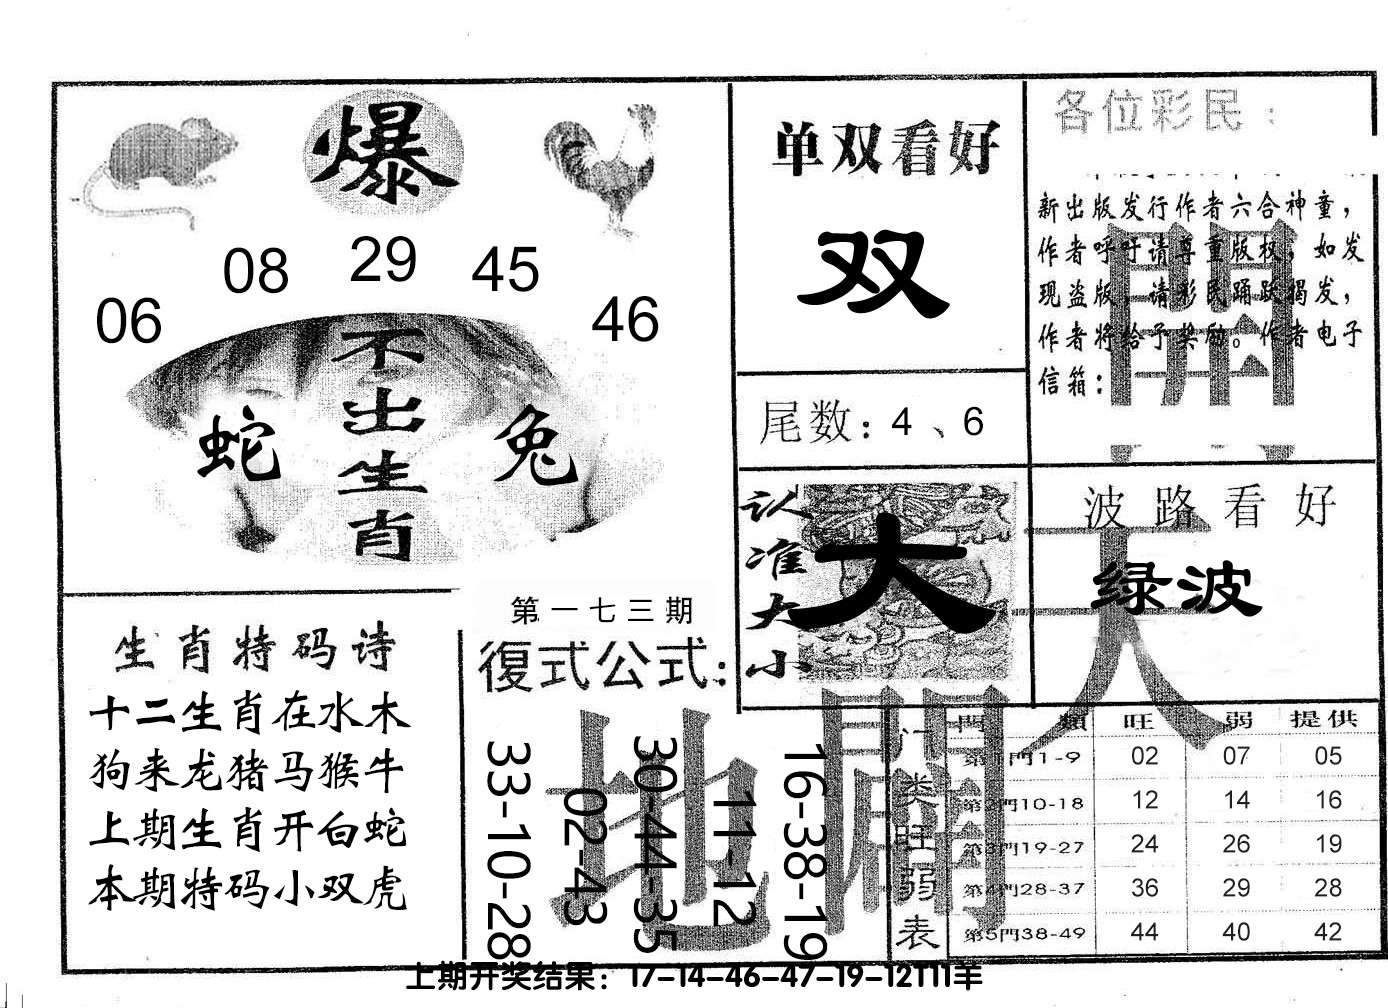 爆
08 29 45
06 46
不出生肖
蛇 兔
单双看好
双
尾数：4、6
各位彩民：
新出版发行作者六合神童，
作者呼吁请尊重版权，如发
现盗版，请彩民踊跃揭发，
作者将给予奖励。作者电子
信箱：
認准大小
大
波路看好
绿波
生肖特码诗
十二生肖在水木
狗来龙猪马猴牛
上期生肖开白蛇
本期特码小双虎
第一七三期
復式公式：
33-10-28
02-43
30-44-35
11-12
16-38-19
天
地
開
门类旺弱表
門類 旺 弱 提供
第1門1-9 02 07 05
第2門10-18 12 14 16
第3門19-27 24 26 19
第4門28-37 36 29 28
第5門38-49 44 40 42
上期开奖结果：17-14-46-47-19-12T11羊